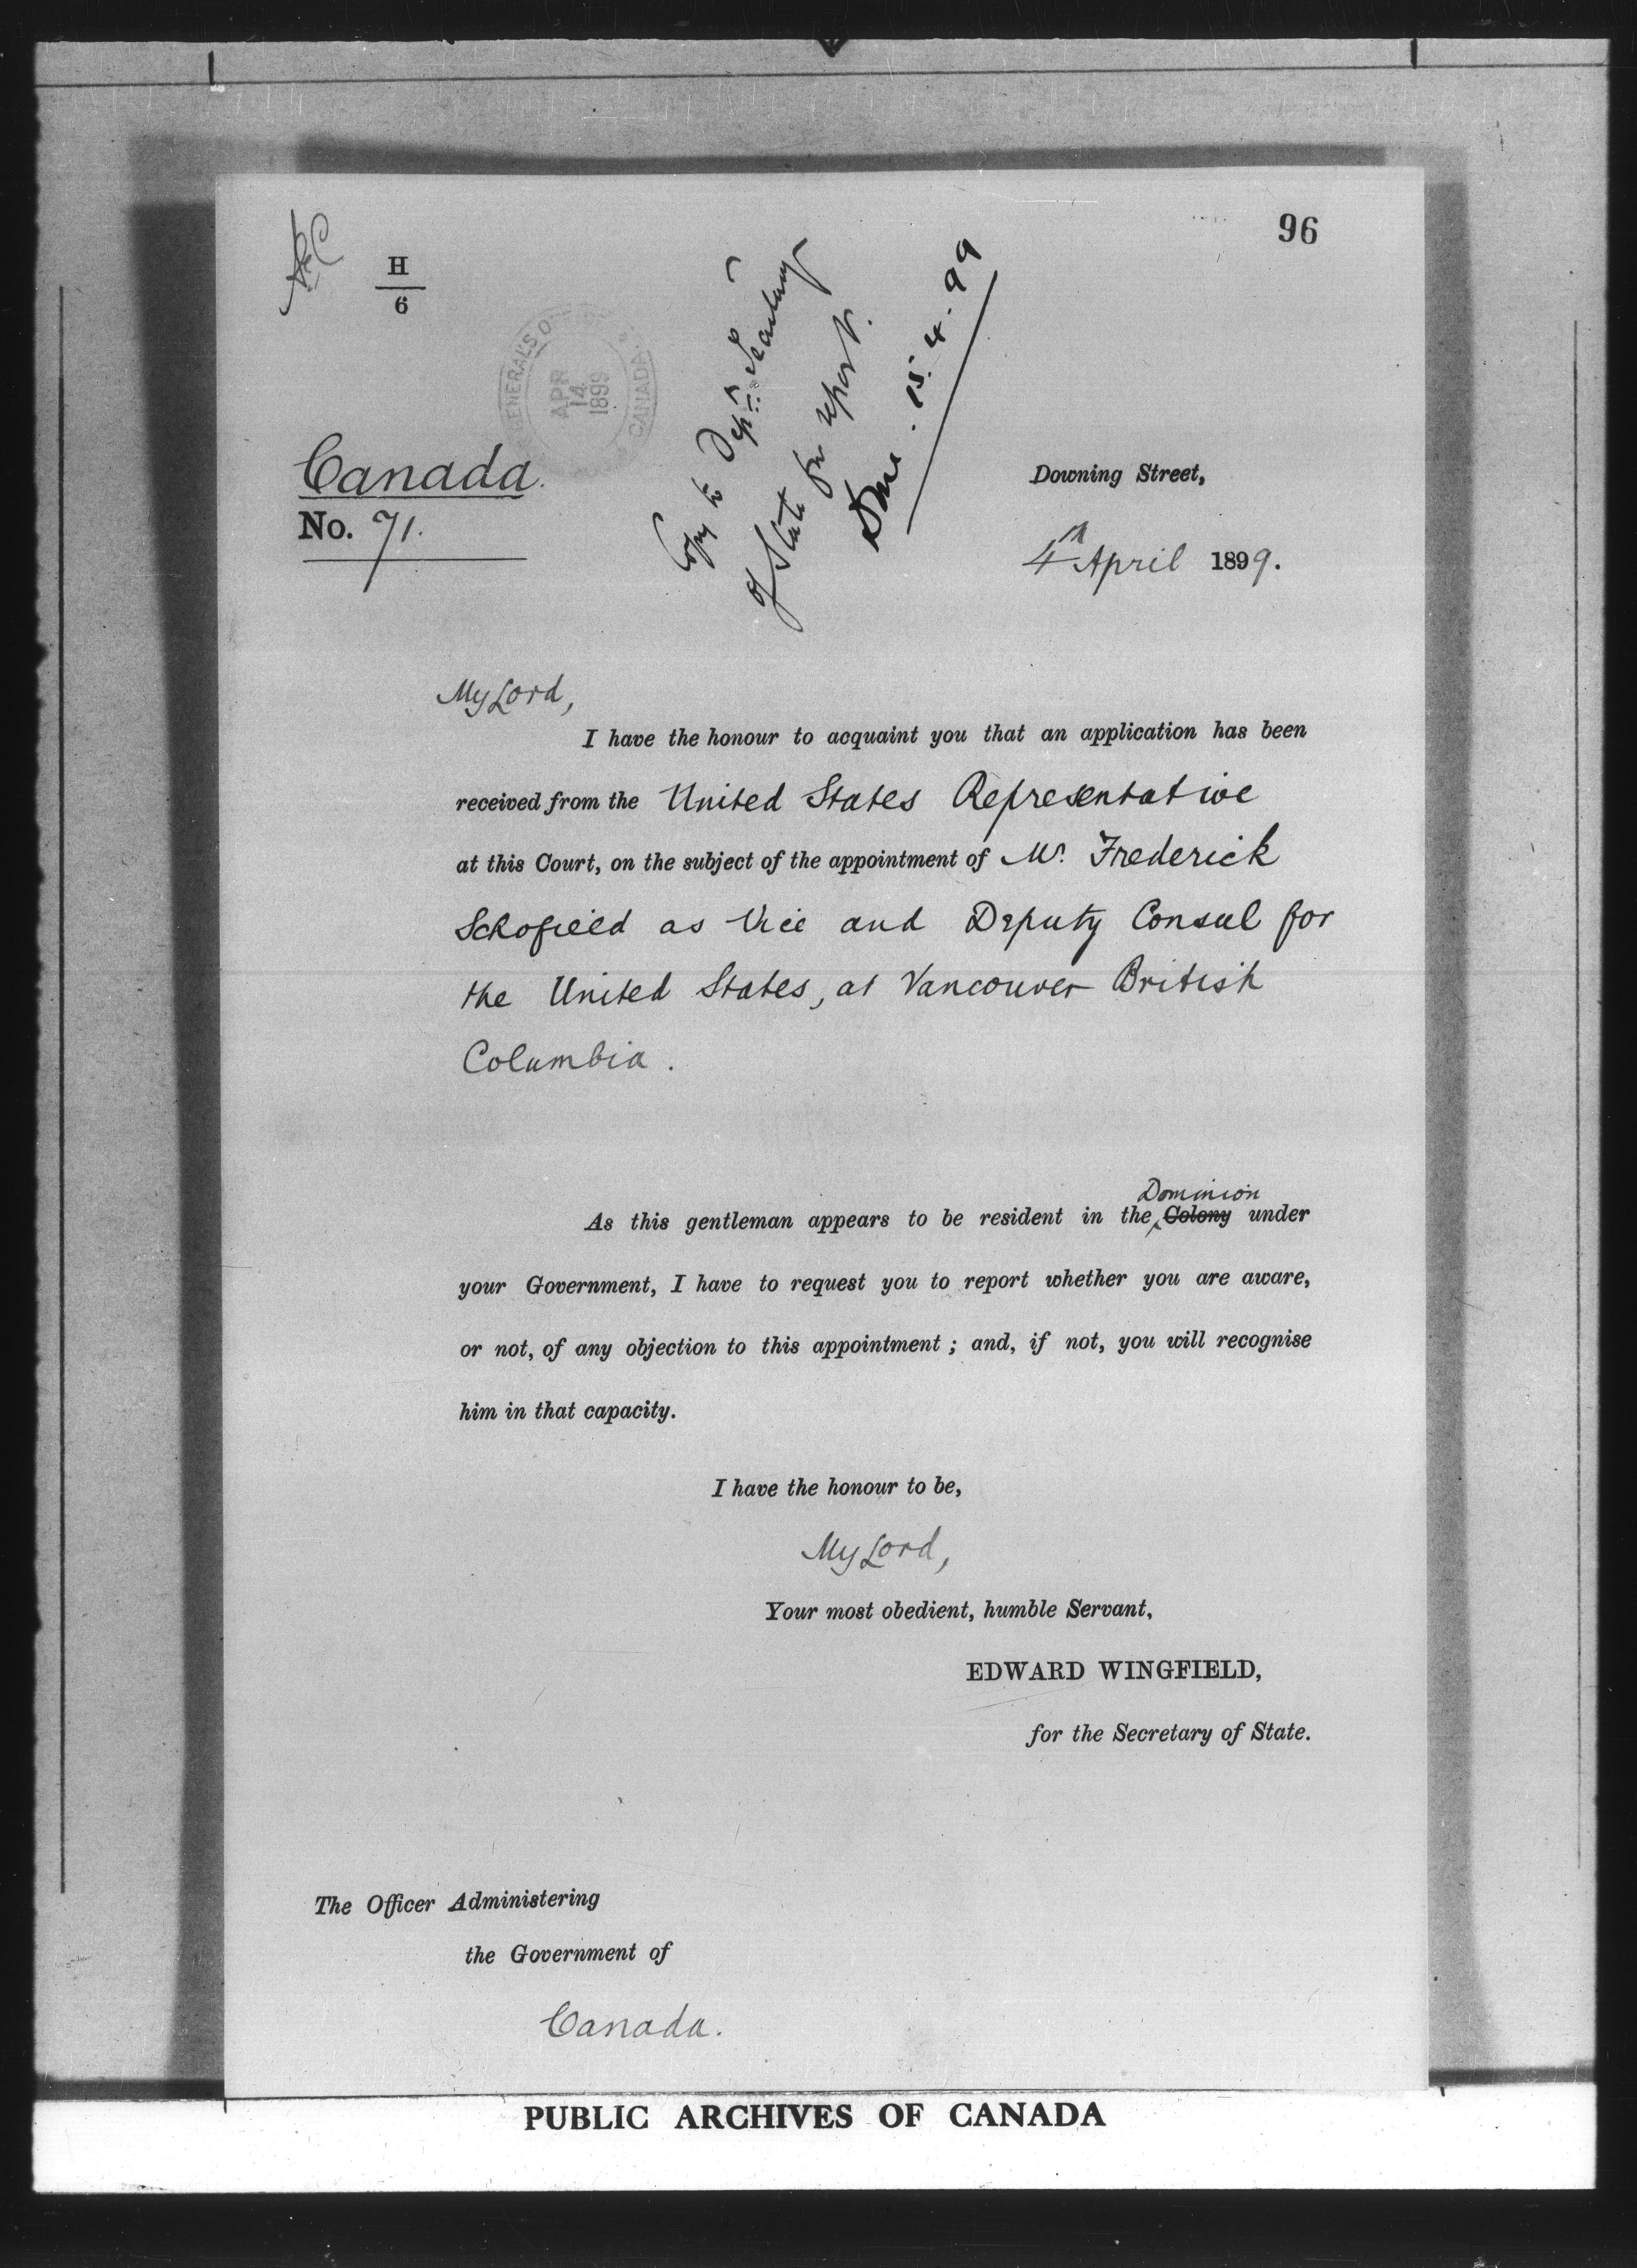 96
H
6
GENERAL'S O
APR
14
1899
CANADA
Copy to Depr. Secretary
of State for report.
Done. 15.4.99
Canada.
No. 71.
Downing Street,
4th April 1899.
My Lord,
I have the honour to acquaint you that an application has been
received from the United States Representative
at this Court, on the subject of the appointment of Mr. Frederick
Schofield as Vice and Deputy Consul for
the United States, at Vancouver British
Columbia.
Dominion
As this gentleman appears to be resident in the Colony under
your Government, I have to request you to report whether you are aware,
or not, of any objection to this appointment; and, if not, you will recognise
him in that capacity.
I have the honour to be,
My Lord,
Your most obedient, humble Servant,
EDWARD WINGFIELD,
for the Secretary of State.
The Officer Administering
the Government of
Canada.
PUBLIC ARCHIVES OF CANADA